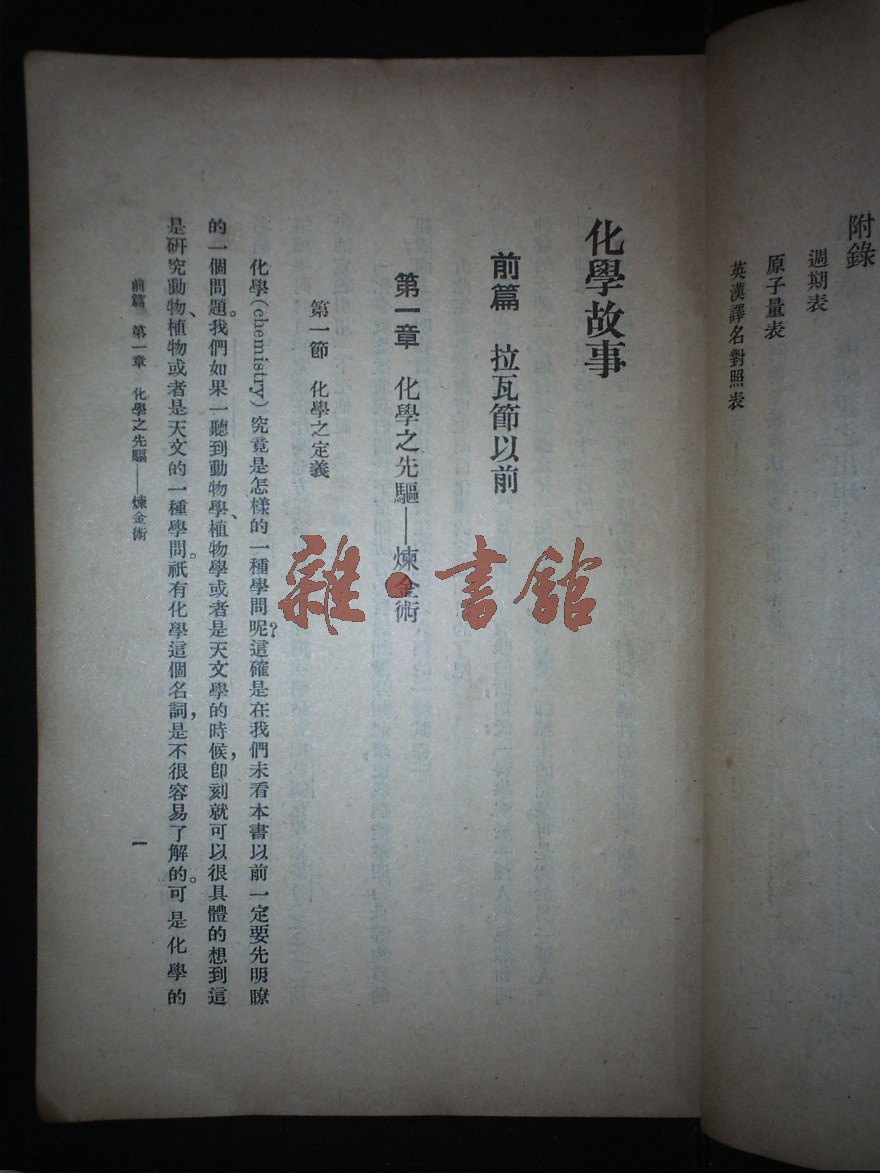 附錄
週期表
原子量表
英漢譯名對照表
化學故事
前篇 拉瓦節以前
第一章 化學之先驅——煉金術
第一節 化學之定義
化學(chemistry)究竟是怎樣的一種學問呢?這確是在我們未看本書以前一定要先明瞭
的一個問題。我們如果一聽到動物學、植物學或者是天文學的時候,卽刻就可以很具體的想到這
是研究動物、植物或者是天文的一種學問。祇有化學這個名詞,是不很容易了解的。可是化學的
前篇 第一章 化學之先驅——煉金術
一
雜·書館